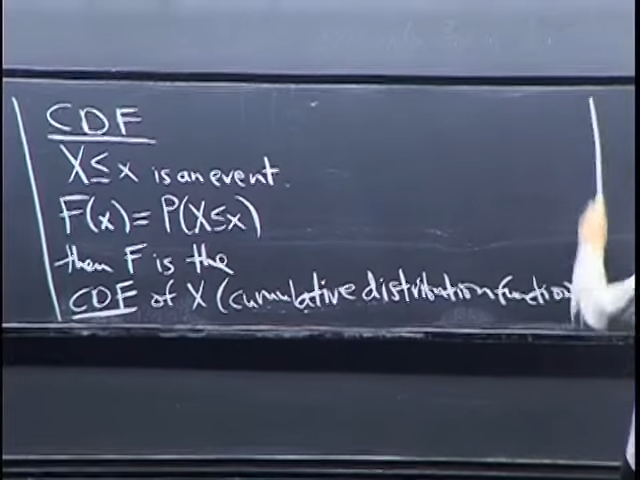 CDF
X ≤ x is an event.
F(x) = P(X ≤ x)
then F is the
CDF of X (cumulative distribution function)